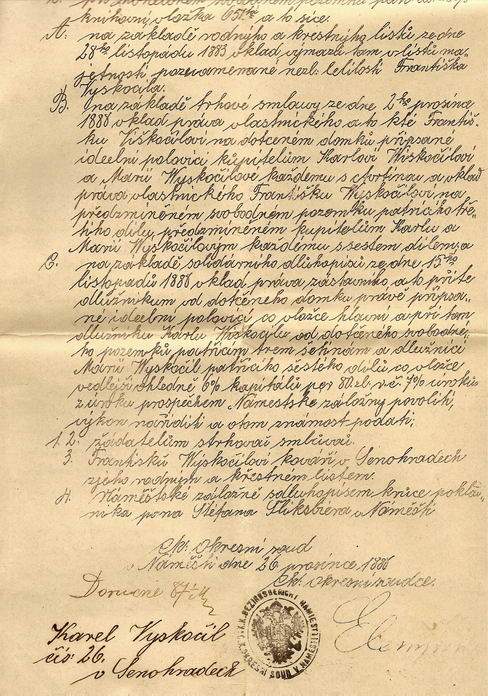 knihovní vložka
a to sice:
A: na základě rodného a křestního listu ze dne
28ho listopadu 1883 vklad výmazu tam v listu ma-
jetnosti poznamenané nezletilosti Františka
Vyskočila.
B. na základě trhové smlouvy ze dne 2ho prosince
1886 vklad práva vlastnického a to k té Františ-
ku Viškočilovi na dotčeném domku připsané
ideelní polovici kupitelům Karlovi Wiskočilovi
a Marii Wyskočilové každému s čtvrtinou a vklad
práva vlastnického Františku Wyskočilovi na
předzmíněném svobodném pozemku patřícího tře-
tího dílu předzmíněném kupitelům Karlu a
Marii Wyskočilovým každému s šestém dílem; a
C. na základě solidárního dluhopisu ze dne 15ho
listopadu 1886 vklad práva zástavního, a to při té
dlužníkům od dotčeného domku právě připsa-
né ideelní polovici co vložce hlavní a při tam
dlužníku Karlu Wiskočilu od dotčeného svobodné-
ho pozemku patřícím a dlužnici
Marii Wyskočil patřícího šestého dílu co vložce
vedlejší ohledně 6% kapitálu per 50 zl. r. č. úroků
z úroku prospěchem Náměstské záložny povoliti,
výkon naříditi a o tom známost podati.
1. 2. žadatelům strhovací smlouvou.
3. Františku Wyskočilovi kováři v Senohradech
zjeho rodným a křestném listem.
4. Náměstské záložně s dluhopisem k ruce poklad-
níka pana Štěpana v Náměšti
Ck. okresní soud
v Náměšti dne 26 prosince 1886
Ck. okresní soudce.
Doručené
Karel Vyskočil
čís 26.
v Senohradech
K.K. BEZIRKSGERICHT NAMIEST
C.K. OKRESNÍ SOUD V NÁMĚŠTI